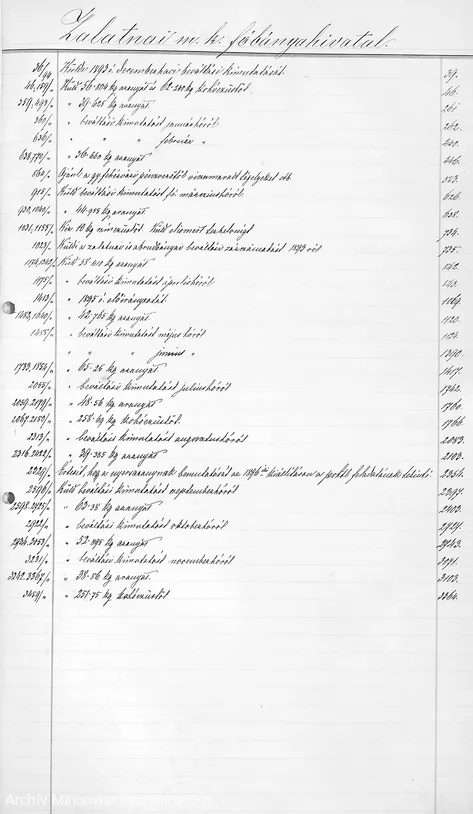 Zalatnai m. k. főbányahivatal.
36/94 Küldi 1893 é. decemberhavi beváltási kimutatását. 39.
46,159/" Küld aranyat és kohóezüstöt. 46.
359,493/" " 39.428 kg aranyat 261.
360/" " beváltási kimutatást januárhóról 262.
636/" " " " február " 440.
638,770/" " 36.660 kg aranyat 446.
860/" Ajánl a gyfehérvári pénzverőtől visszamaradt tégelyeket ott 553.
918/" Küld beváltási kimutatást f. é. márcziushóról. 626.
930,1040/" " 44.988 kg aranyat. 638.
1031,1155/" Kér 10 kg színezüstöt. Küld 734.
1029/" Küldi a zalatnai és abrudbányai beváltási számadásait 1893 ról 735.
1174,1343/" Küld 38.410 kg aranyat 842.
1175/" " beváltási kimutatást áprilishóról. 843.
1413/" " 1895 é. előirányzatát 1109.
1482,1640/" " 42.765 kg aranyat. 1120.
1485/" " beváltási kimutatást május hóról 1124.
" " " június " 1390.
1733,1884/" " 65.26 kg aranyat. 1417.
2055/" " beváltási kimutatást juliushóról 1742.
2059,2199/" " 48.56 kg aranyat 1760.
2067,2189/" " 258.69 kg kohóezüstöt. 1766.
2313/" " beváltási kimutatást augusztushóról 2083.
2316,2422/" " 39.385 kg aranyat 2103.
2329/" Értesít, hogy a nyersaranynak bemutatását az 1896 iki kiállításon a postát feladatának tekinti. 2354.
2596/" Küld beváltási kimutatást szeptemberhóról 2397.
2598,2925/" " 63.38 kg aranyat 2403.
2922/" " beváltási kimutatást oktoberhóról 2724.
2934,3053/" " 52.395 kg aranyat 2743.
3231/" " beváltási kimutatást novemberhóról 3091.
3242,3367/" " 38.86 kg aranyat. 3103.
3459/" " 251.75 kg kohóezüstöt 3364.